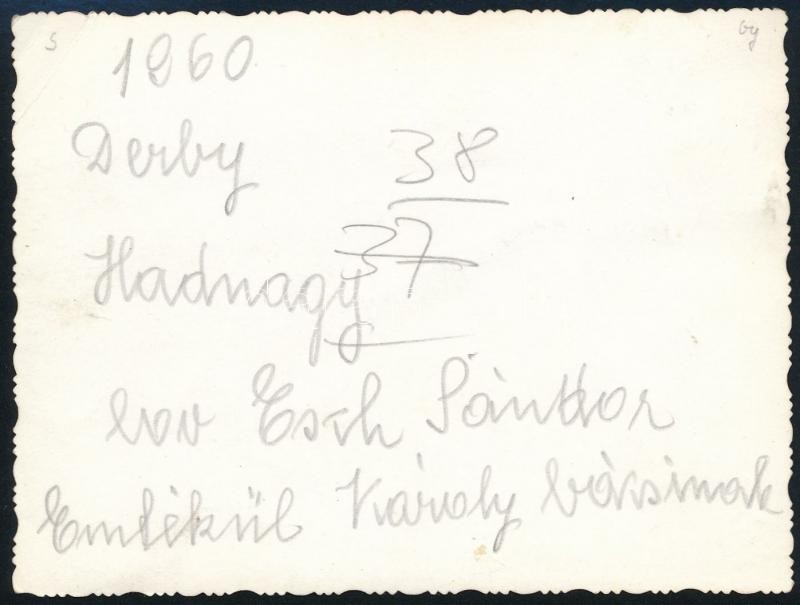 5
gy
1960
Derby
38
37
Hadnagy
lov Esch Sándor
Emlékül Károly bácsinak